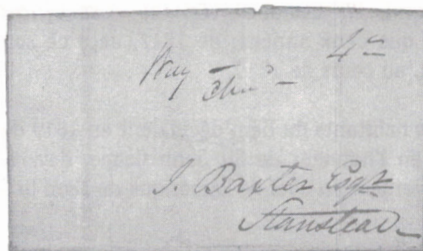 Way 4
J. Baxter Esqr
Stanstead